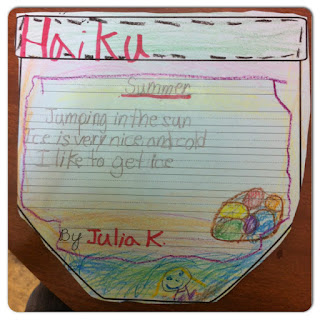 Haiku
Summer
Jumping in the sun
Ice is very nice and cold
I like to get ice
By Julia K.